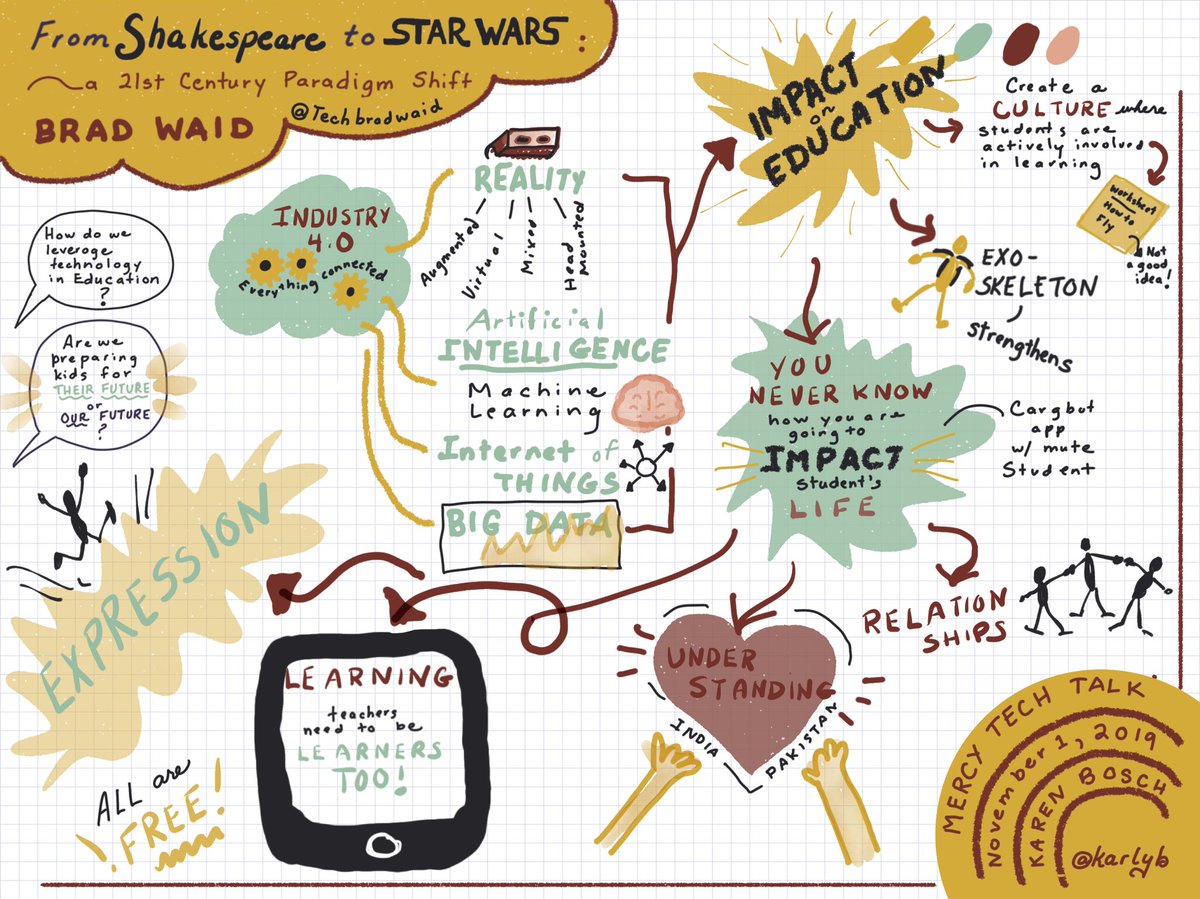 From Shakespeare to STAR WARS:
a 21st Century Paradigm Shift
@Techbradwaid
BRAD WAID
How do we
leverage
technology
in Education
?
Are we
preparing
kids for
THEIR FUTURE
or
OUR FUTURE
?
INDUSTRY
4.0
Everything connected
REALITY
Augmented
Virtual
Mixed
Head
Mounted
Artificial
INTELLIGENCE
Machine
Learning
Internet of
THINGS
BIG DATA
IMPACT
on
EDUCATION
Create a
CULTURE where
students are
actively involved
in learning
Worksheet
How to
Fly
Not
a good
idea!
EXO-
SKELETON
strengthens
YOU
NEVER KNOW
how you are
going to
IMPACT
student's
LIFE
Cargbot
app
w/ mute
Student
RELATION
SHIPS
UNDER
STANDING
INDIA
PAKISTAN
LEARNING
teachers
need to be
LEARNERS
TOO!
EXPRESSION
ALL are
FREE!
MERCY TECH TALK
November 1, 2019
KAREN BOSCH
@karlyb